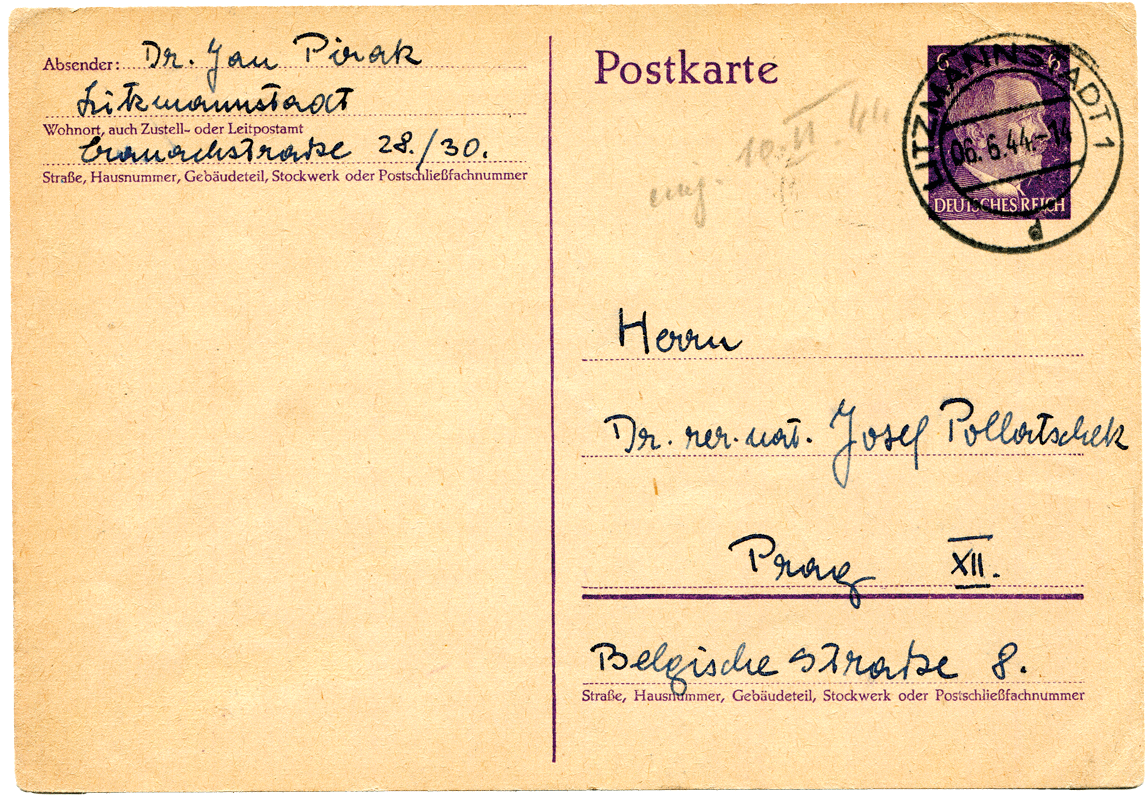 Absender: Dr. Jan Pirak
Litzmannstadt
Wohnort, auch Zustell- oder Leitpostamt
Cranachstraße 28./30.
Straße, Hausnummer, Gebäudeteil, Stockwerk oder Postschließfachnummer
Postkarte
10. VI. 44
6 6
DEUTSCHES REICH
LITZMANNSTADT 1
06.6.44.-14
d
Herrn
Dr. rer. nat. Josef Pollatschek
Prag XII.
Belgische Straße 8.
Straße, Hausnummer, Gebäudeteil, Stockwerk oder Postschließfachnummer